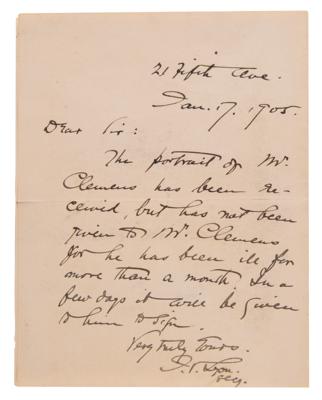 21 Fifth Ave.
Jan. 17. 1905.
Dear Sir:
The portrait of Mr.
Clemens has been re-
ceived, but has not been
given to Mr. Clemens
for he has been ill for
more than a month. In a
few days it will be given
to him to sign.
Very truly Yours.
I. V. Lyon.
secy.